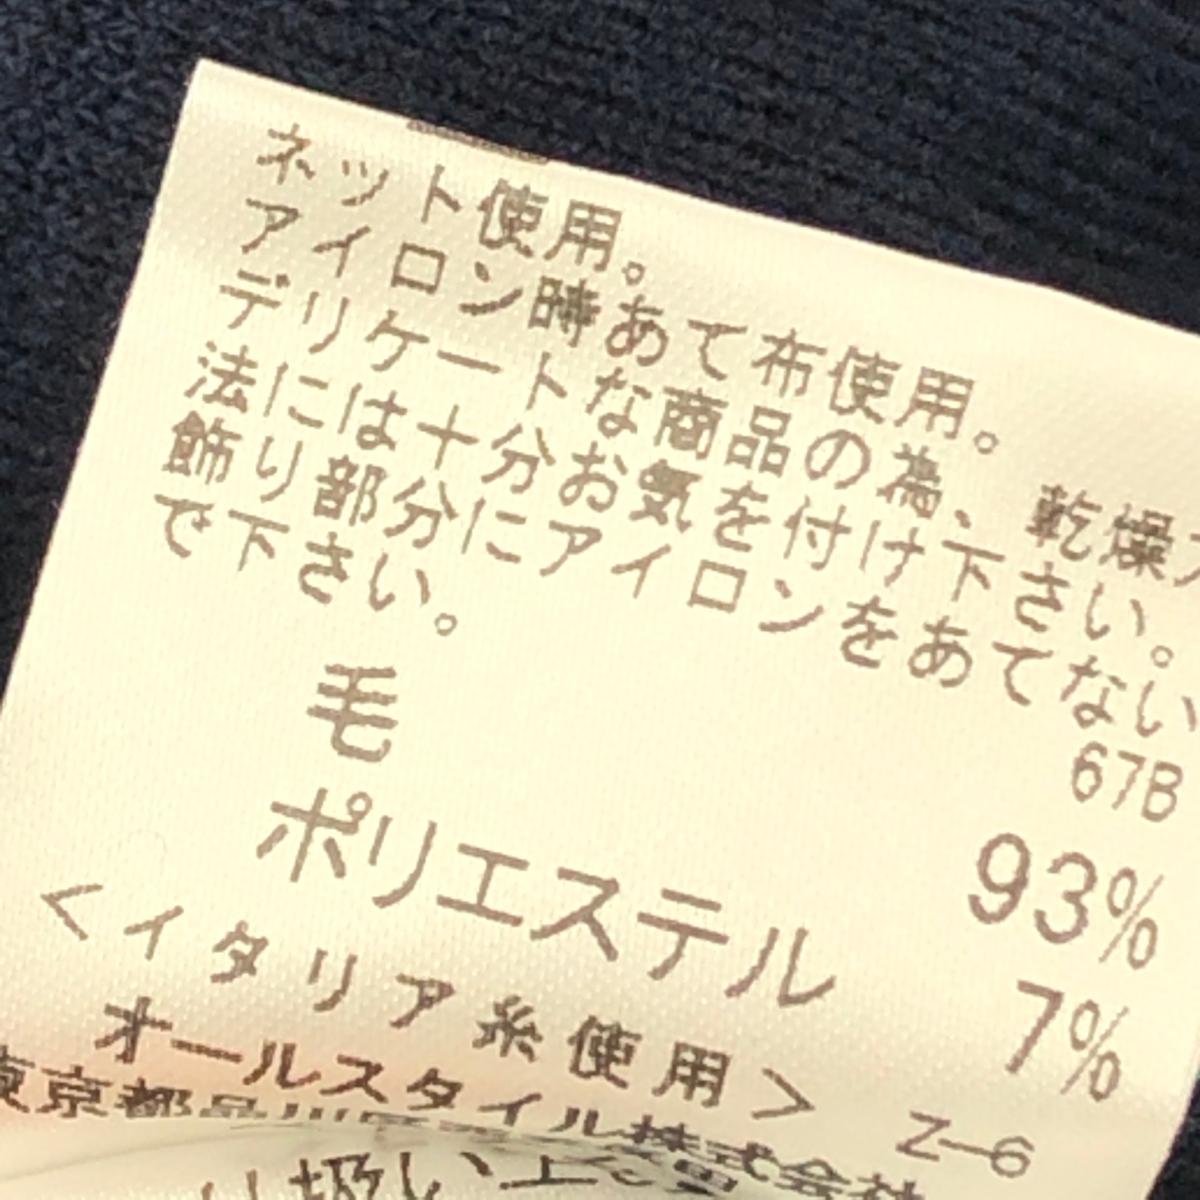 ネット使用。
アイロン時あて布使用。
デリケートな商品の為、乾燥
法には十分お気を付け下さい。
飾り部分にアイロンをあてない
で下さい。
67B
毛 93%
ポリエステル 7%
<イタリア糸使用>
Z-6
オールスタイル株式会社
東京都品川区
り扱い上の